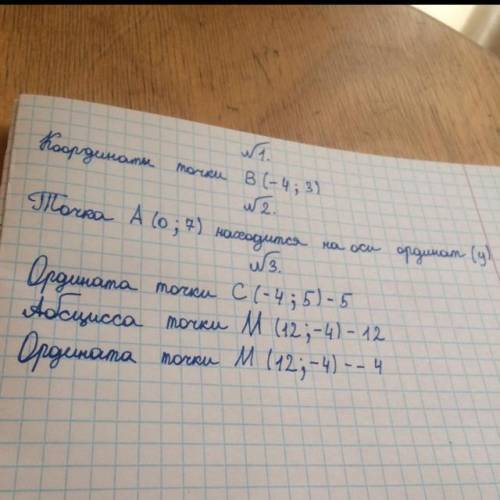 №1.
Координаты точки B(-4; 3)
№2.
Точка A (0; 7) находится на оси ординат (y)
№3.
Ордината точки C (-4; 5) - 5
Абсцисса точки M (12; -4) - 12
Ордината точки M (12; -4) - - 4